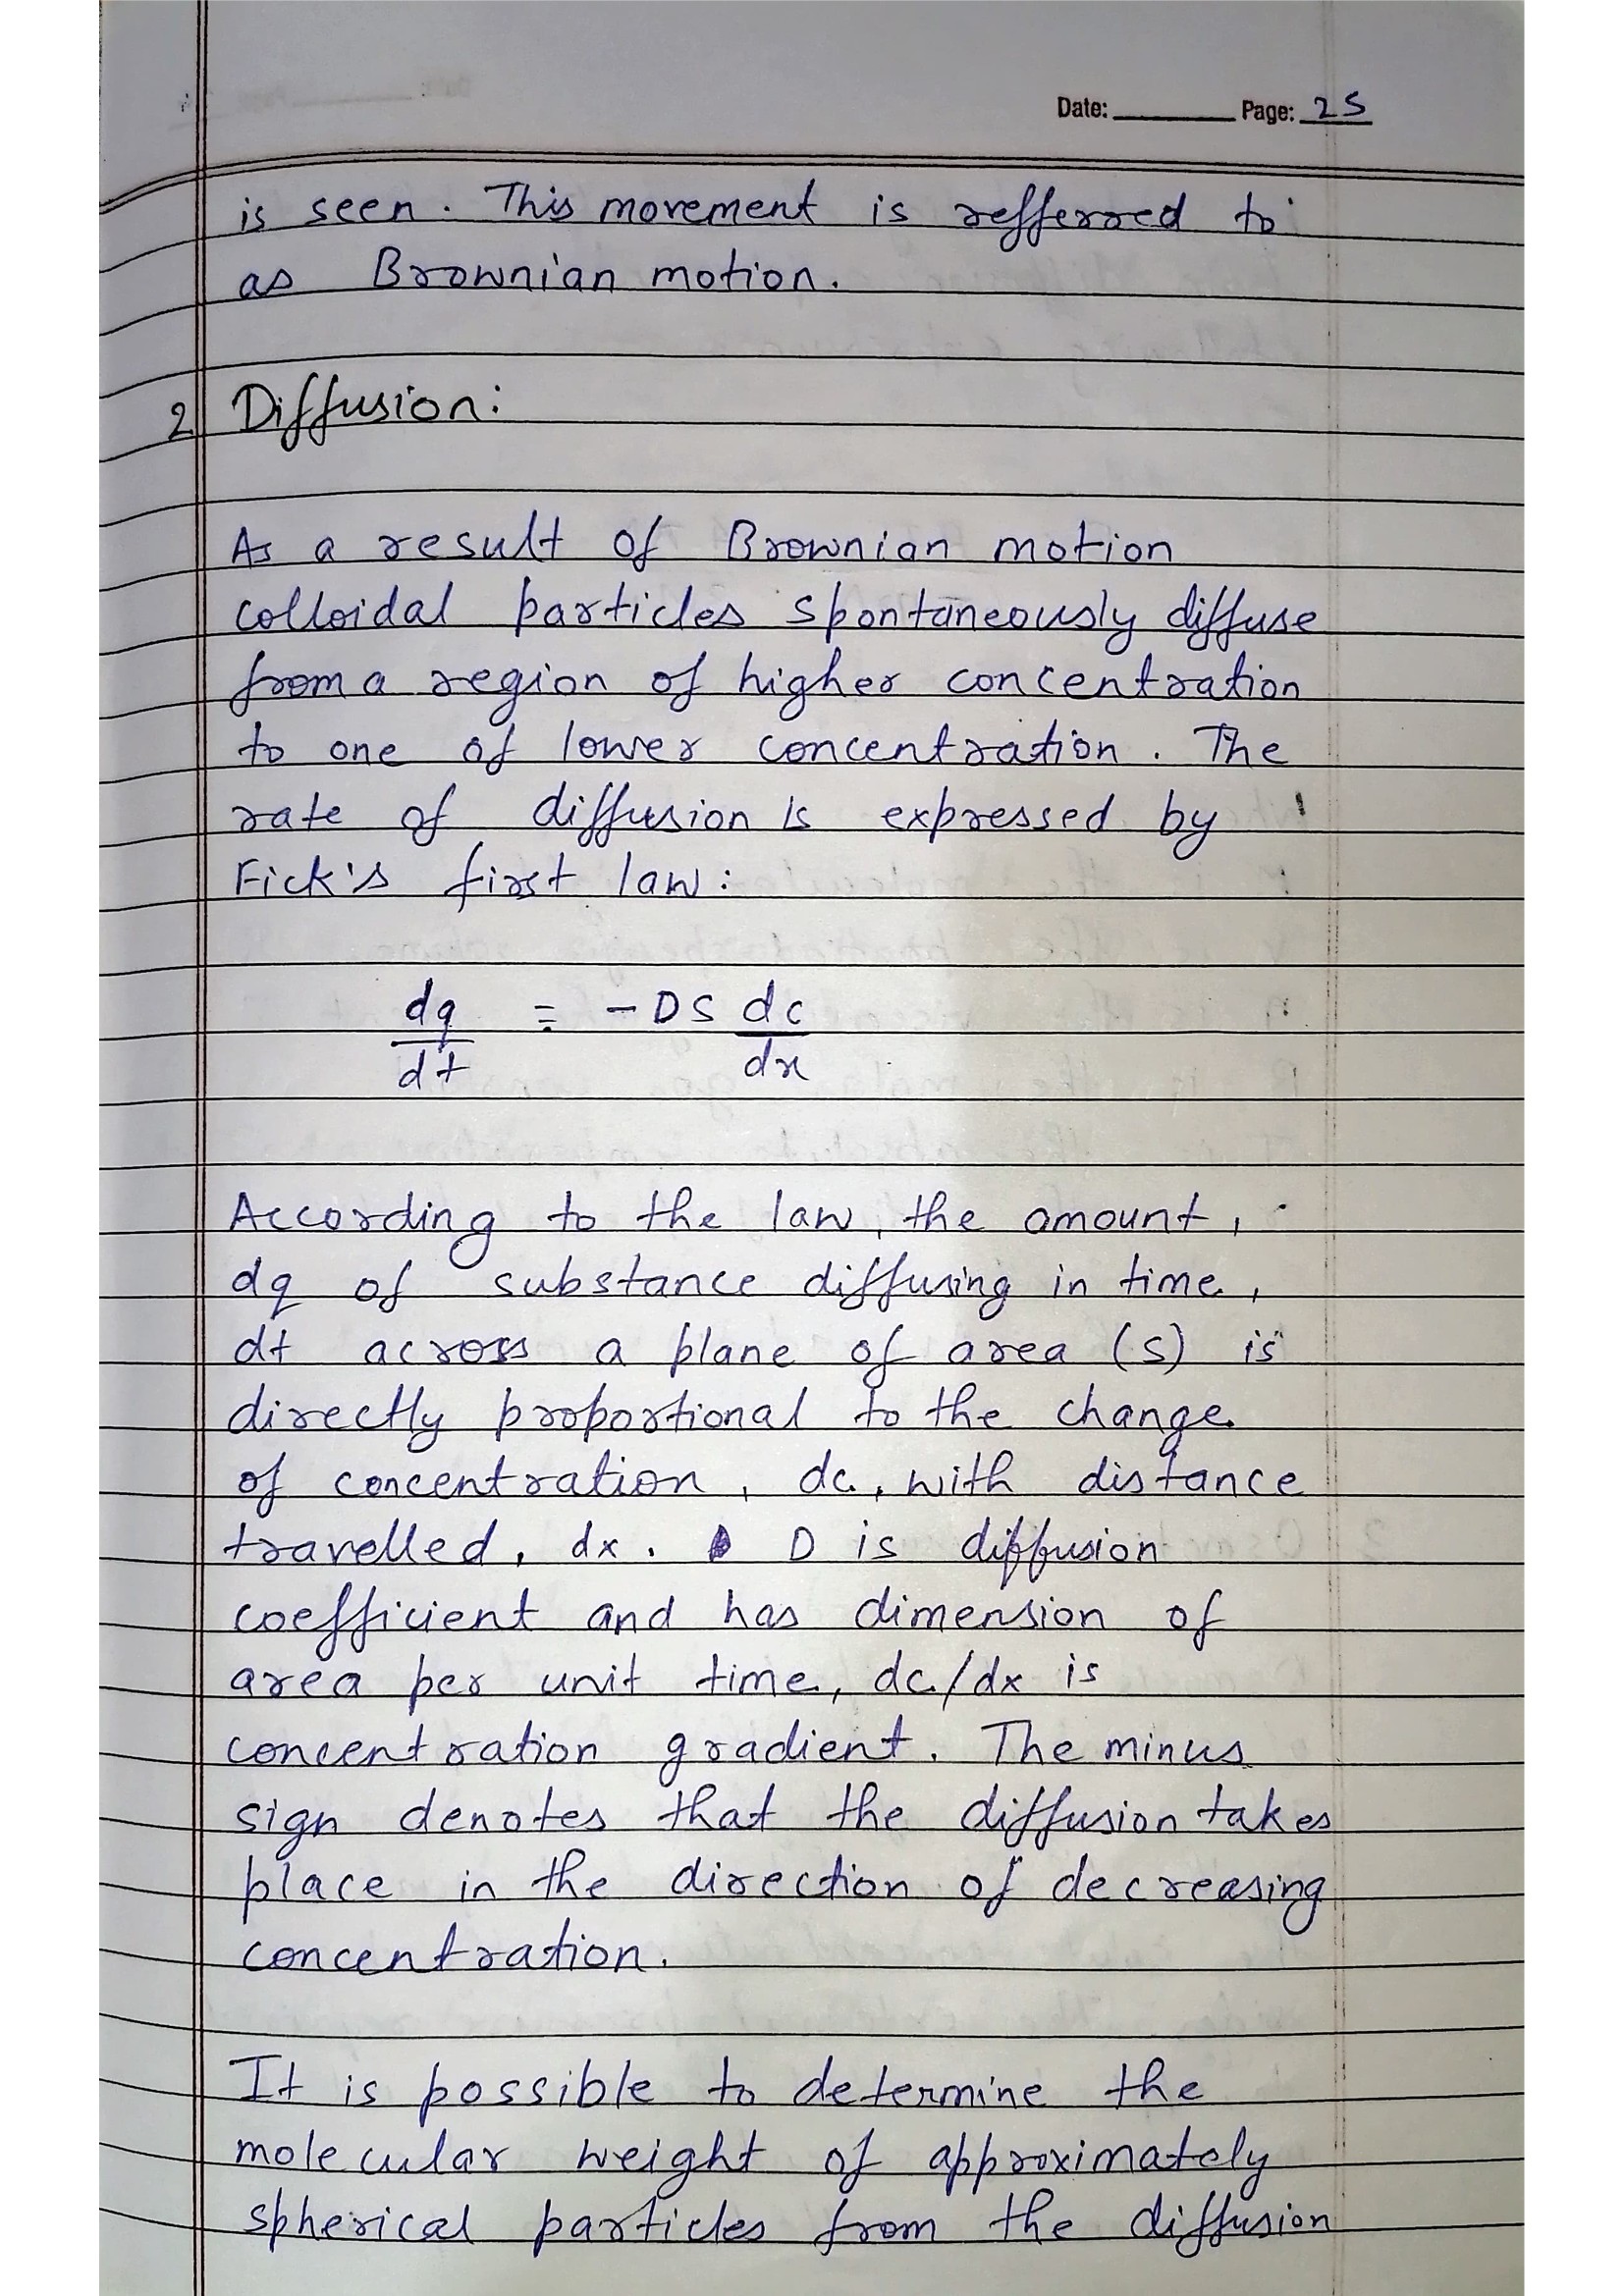 Date: ________ Page: 25
is seen. This movement is refferred to
as Brownian motion.
2 Diffusion:
As a result of Brownian motion
colloidal particles spontaneously diffuse
from a region of higher concentration
to one of lower concentration. The
rate of diffusion is expressed by
Fick's first law:
dq/dt = -DS dc/dx
According to the law, the amount,
dq of substance diffusing in time,
dt across a plane of area (S) is
directly proportional to the change
of concentration, dc, with distance
travelled, dx. D is diffusion
coefficient and has dimension of
area per unit time, dc/dx is
concentration gradient. The minus
sign denotes that the diffusion takes
place in the direction of decreasing
concentration.
It is possible to determine the
molecular weight of approximately
spherical particles from the diffusion